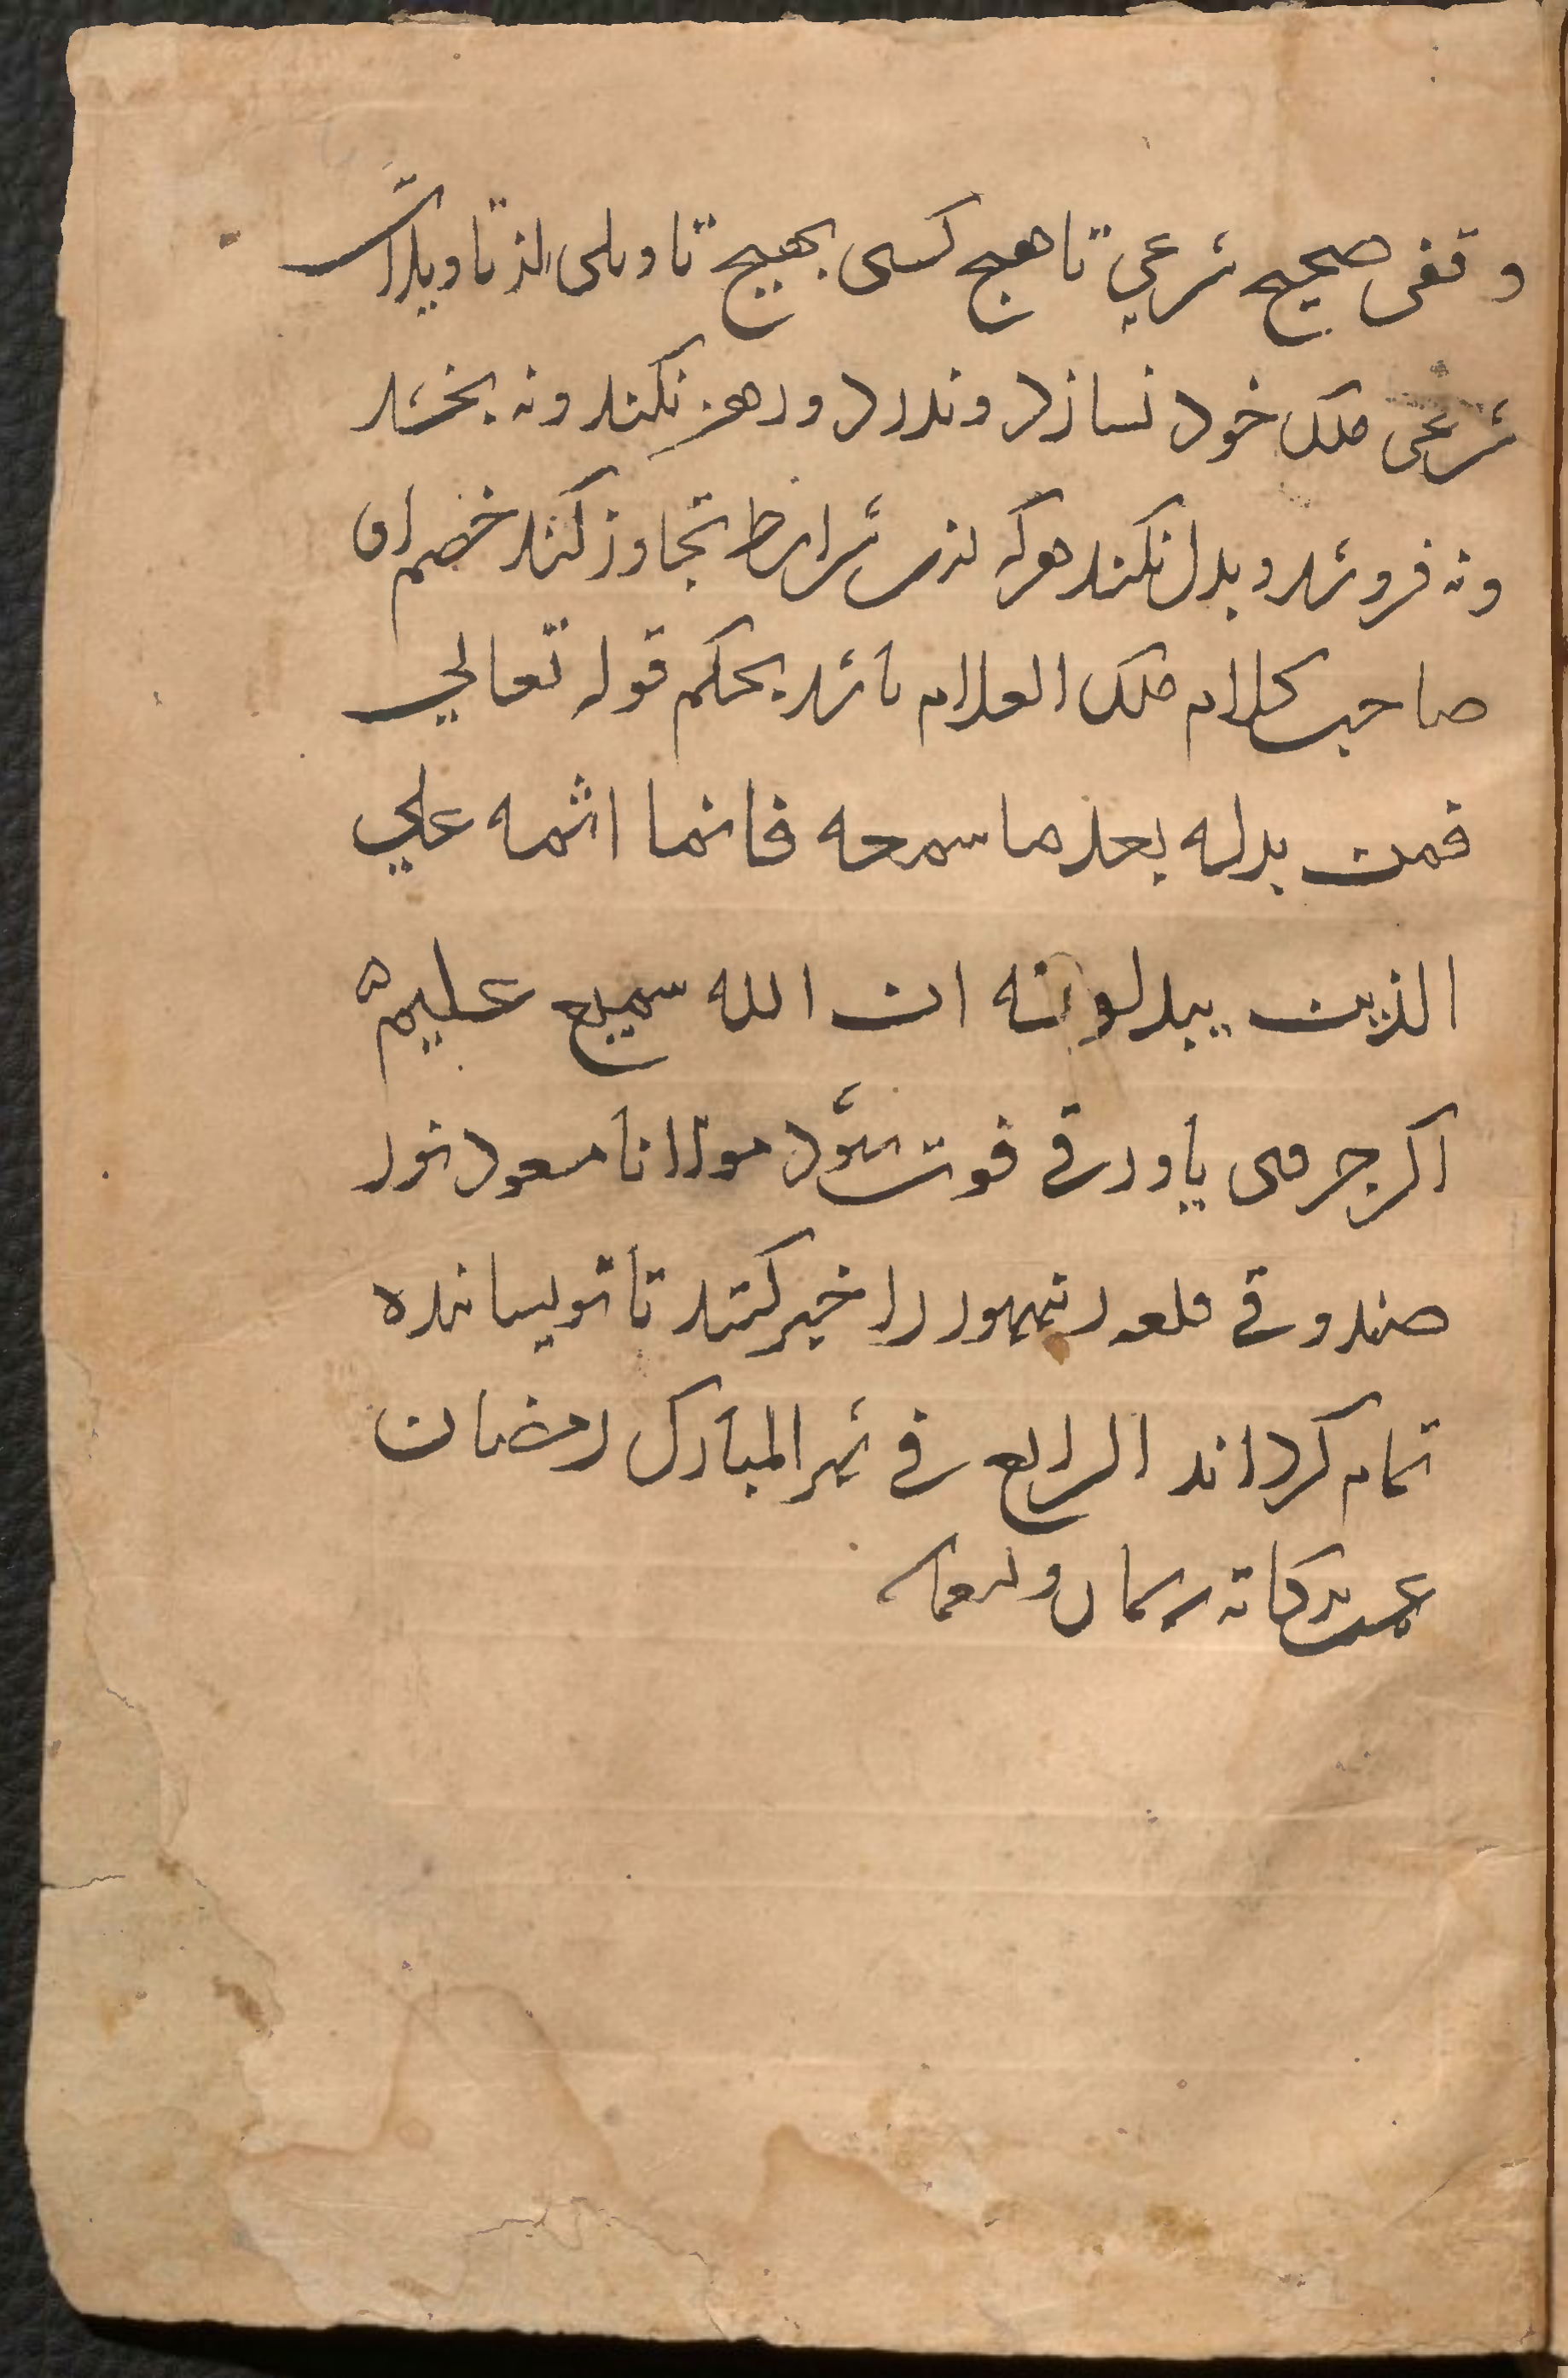 وقفی صحیح شرعی تا هیچ کسی بهیچ تاویلی از تاویلات
شرعی ملک خود نسازد و ندرد و رهن نکند و نه بخشد
و نه فروشد و بدل نکند هرکه ازین شرایط تجاوز کند خصم او
صاحب کلام ملک العلام باشد بحکم قوله تعالی
فمن بدله بعدما سمعه فانما اثمه علی
الذین یبدلونه ان الله سمیع علیم
اکر جرمی یا ورقی فوت شود مولانا مسعود نور
صندوقی قلعه رنتهبور را خبر کنند تا نویسانده
تمام کرداند الرابع فی شهر المبارک رمضان
عمت برکاته